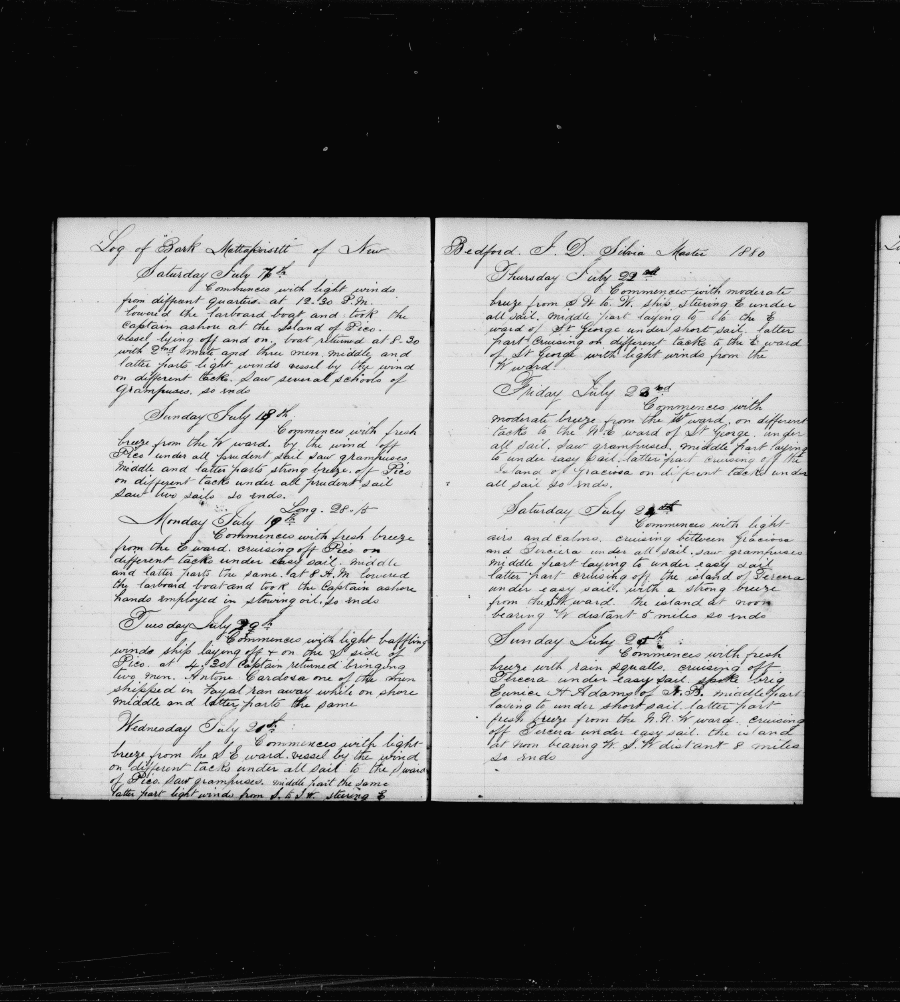 Log of "Bark Mattapoisett" of New
Saturday July 17th
Commences with light winds
from diffrant quarters. at 12.30 P.M.
lowerd the larboard boat and took the
Captain ashore at the Island of Pico.
vessel lying off and on. boat returned at 8.30
with 2nd mate and three men. middle and
latter parts light winds vessel by the wind
on different tacks. Saw several schools of
grampuses. so ends
Sunday July 18th
Commences with fresh
breeze from the W ward. by the wind off
Pico under all prudent sail saw grampuses
middle and latter parts strong breeze. off Pico
on different tacks under all prudent sail
saw two sails so ends.
Long. 28.15
Monday July 19th
Commences with fresh breeze
from the E ward. cruising off Pico on
different tacks under easy sail. middle
and latter parts the same. at 8 A.M lowered
the larboard boat and took the Captain ashore
hands employed in stowing oil. so ends
Tuesday July 20th
Commences with light baffling
winds ship laying off & on the side of
Pico. at 4.30 Captain returned bringing
two men. Antone Cardosa one of the men
shipped in Fayal ran away while on shore
middle and latter parts the same
Wednesday July 21st
Commences with light
breeze from the S E ward. vessel by the wind
on different tacks under all sail to the ward
of Pico. Saw grampuses. middle part the same
latter part light winds from S. to S W. steering E
Bedford. J. D. Silvia Master 1880
Thursday July 22nd
Commences with moderate
breeze from S W to W. ship steering E under
all sail. middle part laying to to the E
ward of St George under short sail. latter
part cruising on different tacks to the E ward
of St George with light winds from the
W ward
Friday July 23rd
Commences with
moderate breeze from the W ward. on different
tacks to the N.E ward of St George. under
all sail. saw grampuses. middle part laying
to under easy sail. latter part cruising off the
Island of Graciosa on difrent tacks under
all sail so ends.
Saturday July 24th
Commences with light
airs and calms. cruising between Graciosa
and Terciera under all sail. saw grampuses
middle part laying to under easy sail
latter part cruising off the island of Tercera
under easy sail. with a strong breeze
from the ward. the island at noon
bearing W distant 5 miles so ends
Sunday July 25th
Commences with fresh
breeze with rain squalls. cruising off
Tercera under easy sail. spoke brig
Eunice H Adams of N.B. middle part
laying to under short sail. latter part
fresh breeze from the N.N.W ward. cruising
off Tercera under easy sail. the island
at non bearing W. S. W distant 8 miles
so ends